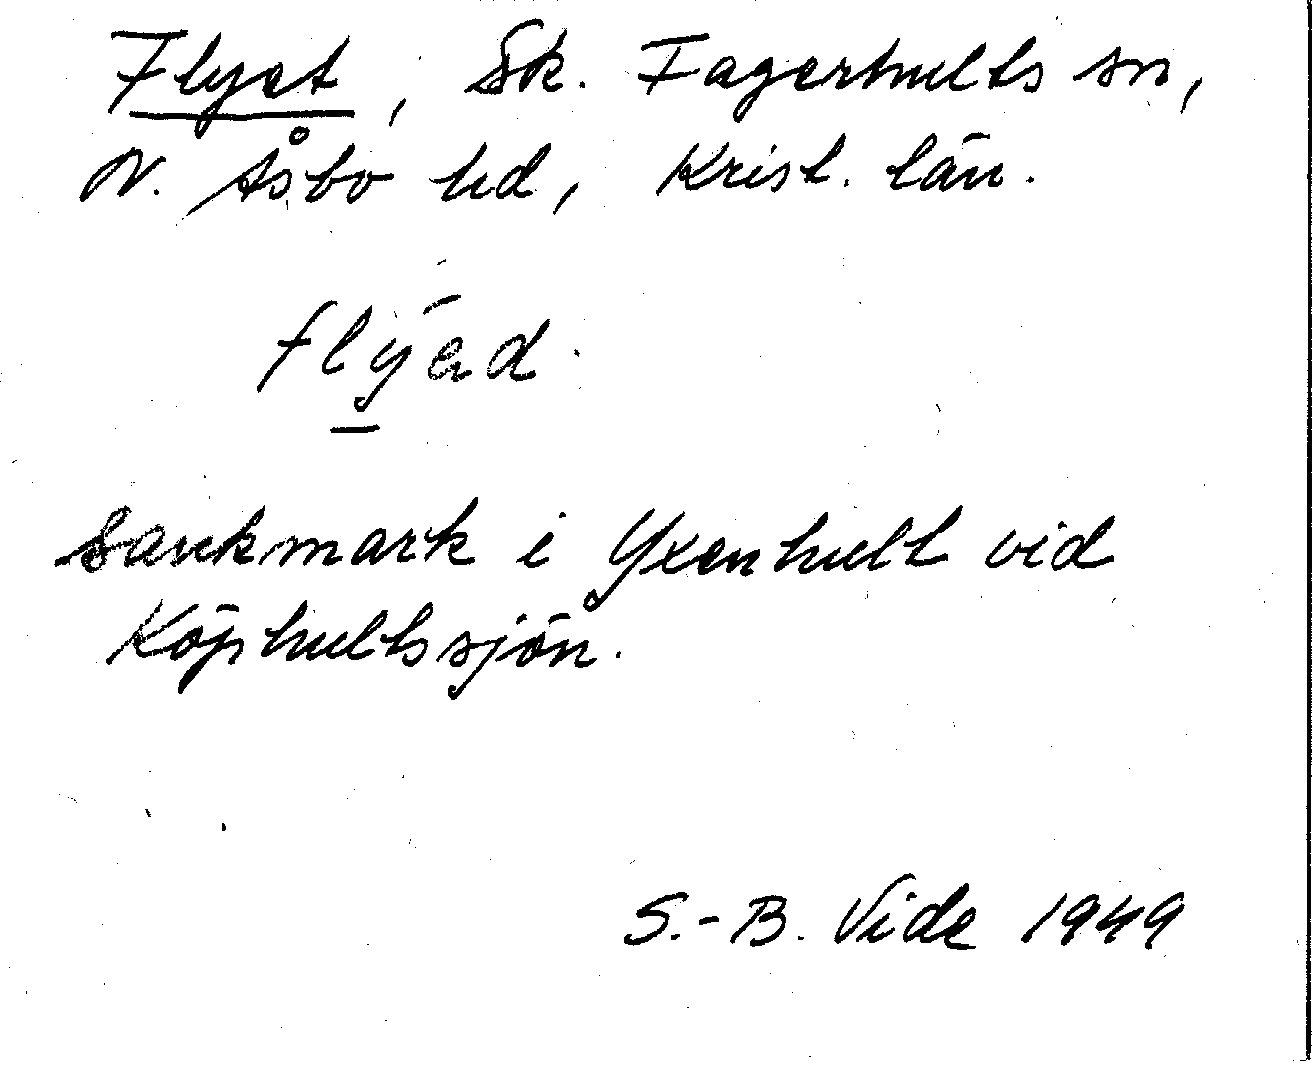 Flyet, Sk. Fagerhults sn,
N. Åsbo hd, Krist. län.
flýəd.
Sankmark i Yxenhult vid
Köphultssjön.
S.-B. Vide 1949